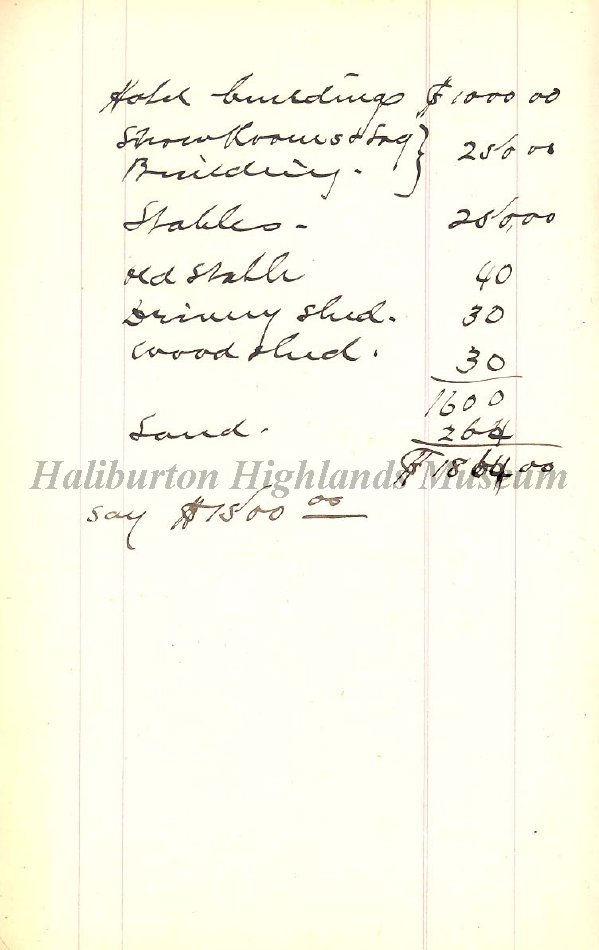 Hotel buildings $1000 00
Show Rooms & Log } 250 00
Building.
Stables - 250,00
old stable 40
Drivery shed. 30
wood shed. 30
1600
Land. 264
$1864 00
Haliburton Highlands Museum
say $1500 00